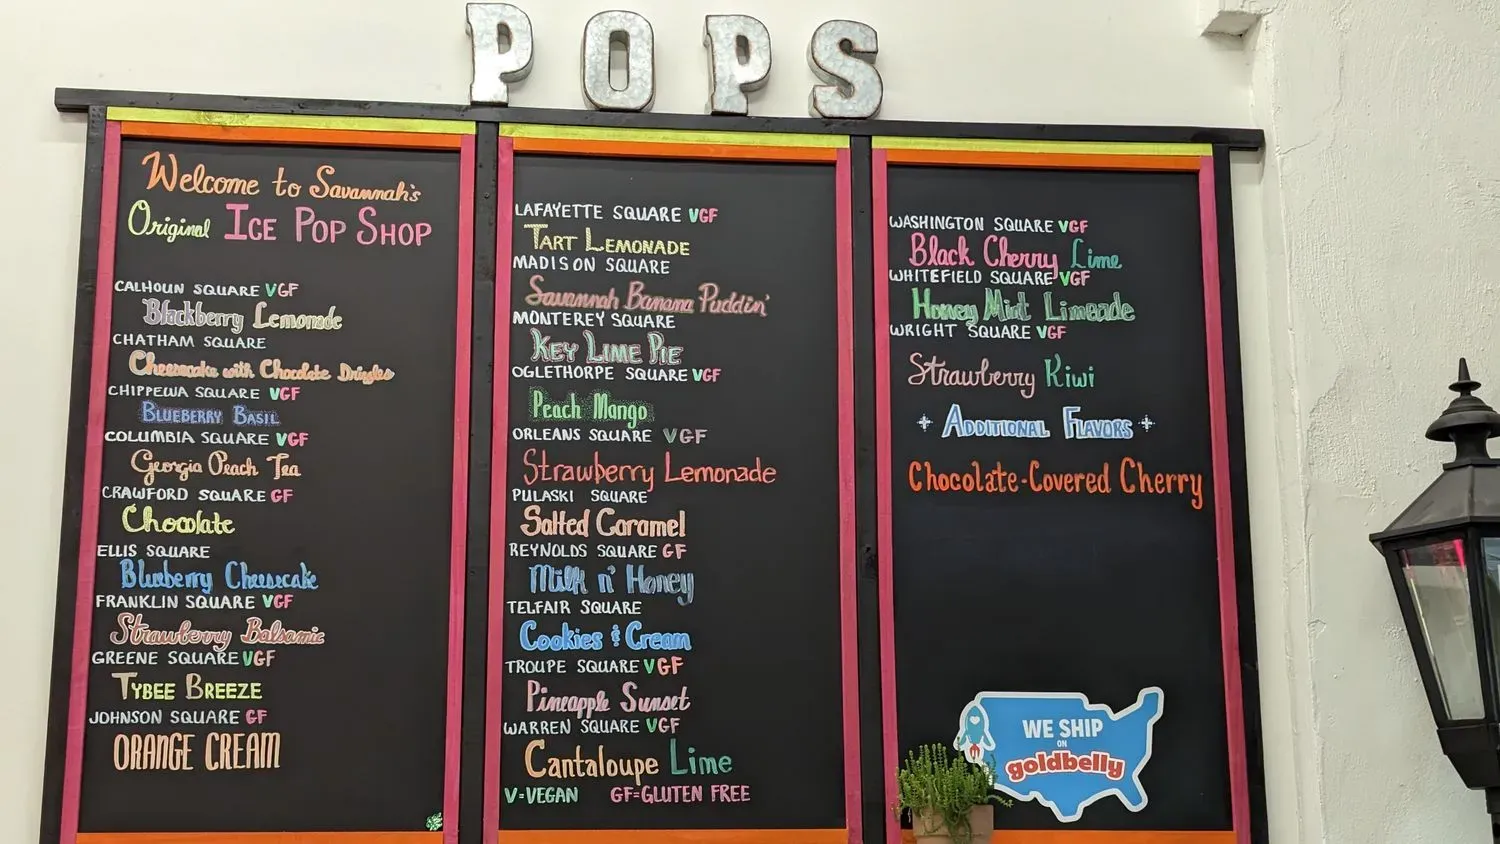 POPS
Welcome to Savannah's
Original Ice Pop Shop
CALHOUN SQUARE VGF
Blackberry Lemonade
CHATHAM SQUARE
Cheesecake with Chocolate Drizzles
CHIPPEWA SQUARE VGF
BLUEBERRY BASIL
COLUMBIA SQUARE VGF
Georgia Peach Tea
CRAWFORD SQUARE GF
Chocolate
ELLIS SQUARE
Blueberry Cheesecake
FRANKLIN SQUARE VGF
Strawberry Balsamic
GREENE SQUARE VGF
TYBEE BREEZE
JOHNSON SQUARE GF
ORANGE CREAM
LAFAYETTE SQUARE VGF
TART LEMONADE
MADISON SQUARE
Savannah Banana Puddin'
MONTEREY SQUARE
KEY LIME PIE
OGLETHORPE SQUARE VGF
Peach Mango
ORLEANS SQUARE VGF
Strawberry Lemonade
PULASKI SQUARE
Salted Caramel
REYNOLDS SQUARE GF
Milk n' Honey
TELFAIR SQUARE
Cookies & Cream
TROUPE SQUARE VGF
Pineapple Sunset
WARREN SQUARE VGF
Cantaloupe Lime
V=VEGAN GF=GLUTEN FREE
WASHINGTON SQUARE VGF
Black Cherry Lime
WHITEFIELD SQUARE VGF
Honey Mint Limeade
WRIGHT SQUARE VGF
Strawberry Kiwi
ADDITIONAL FLAVORS
Chocolate-Covered Cherry
WE SHIP
ON
goldbelly